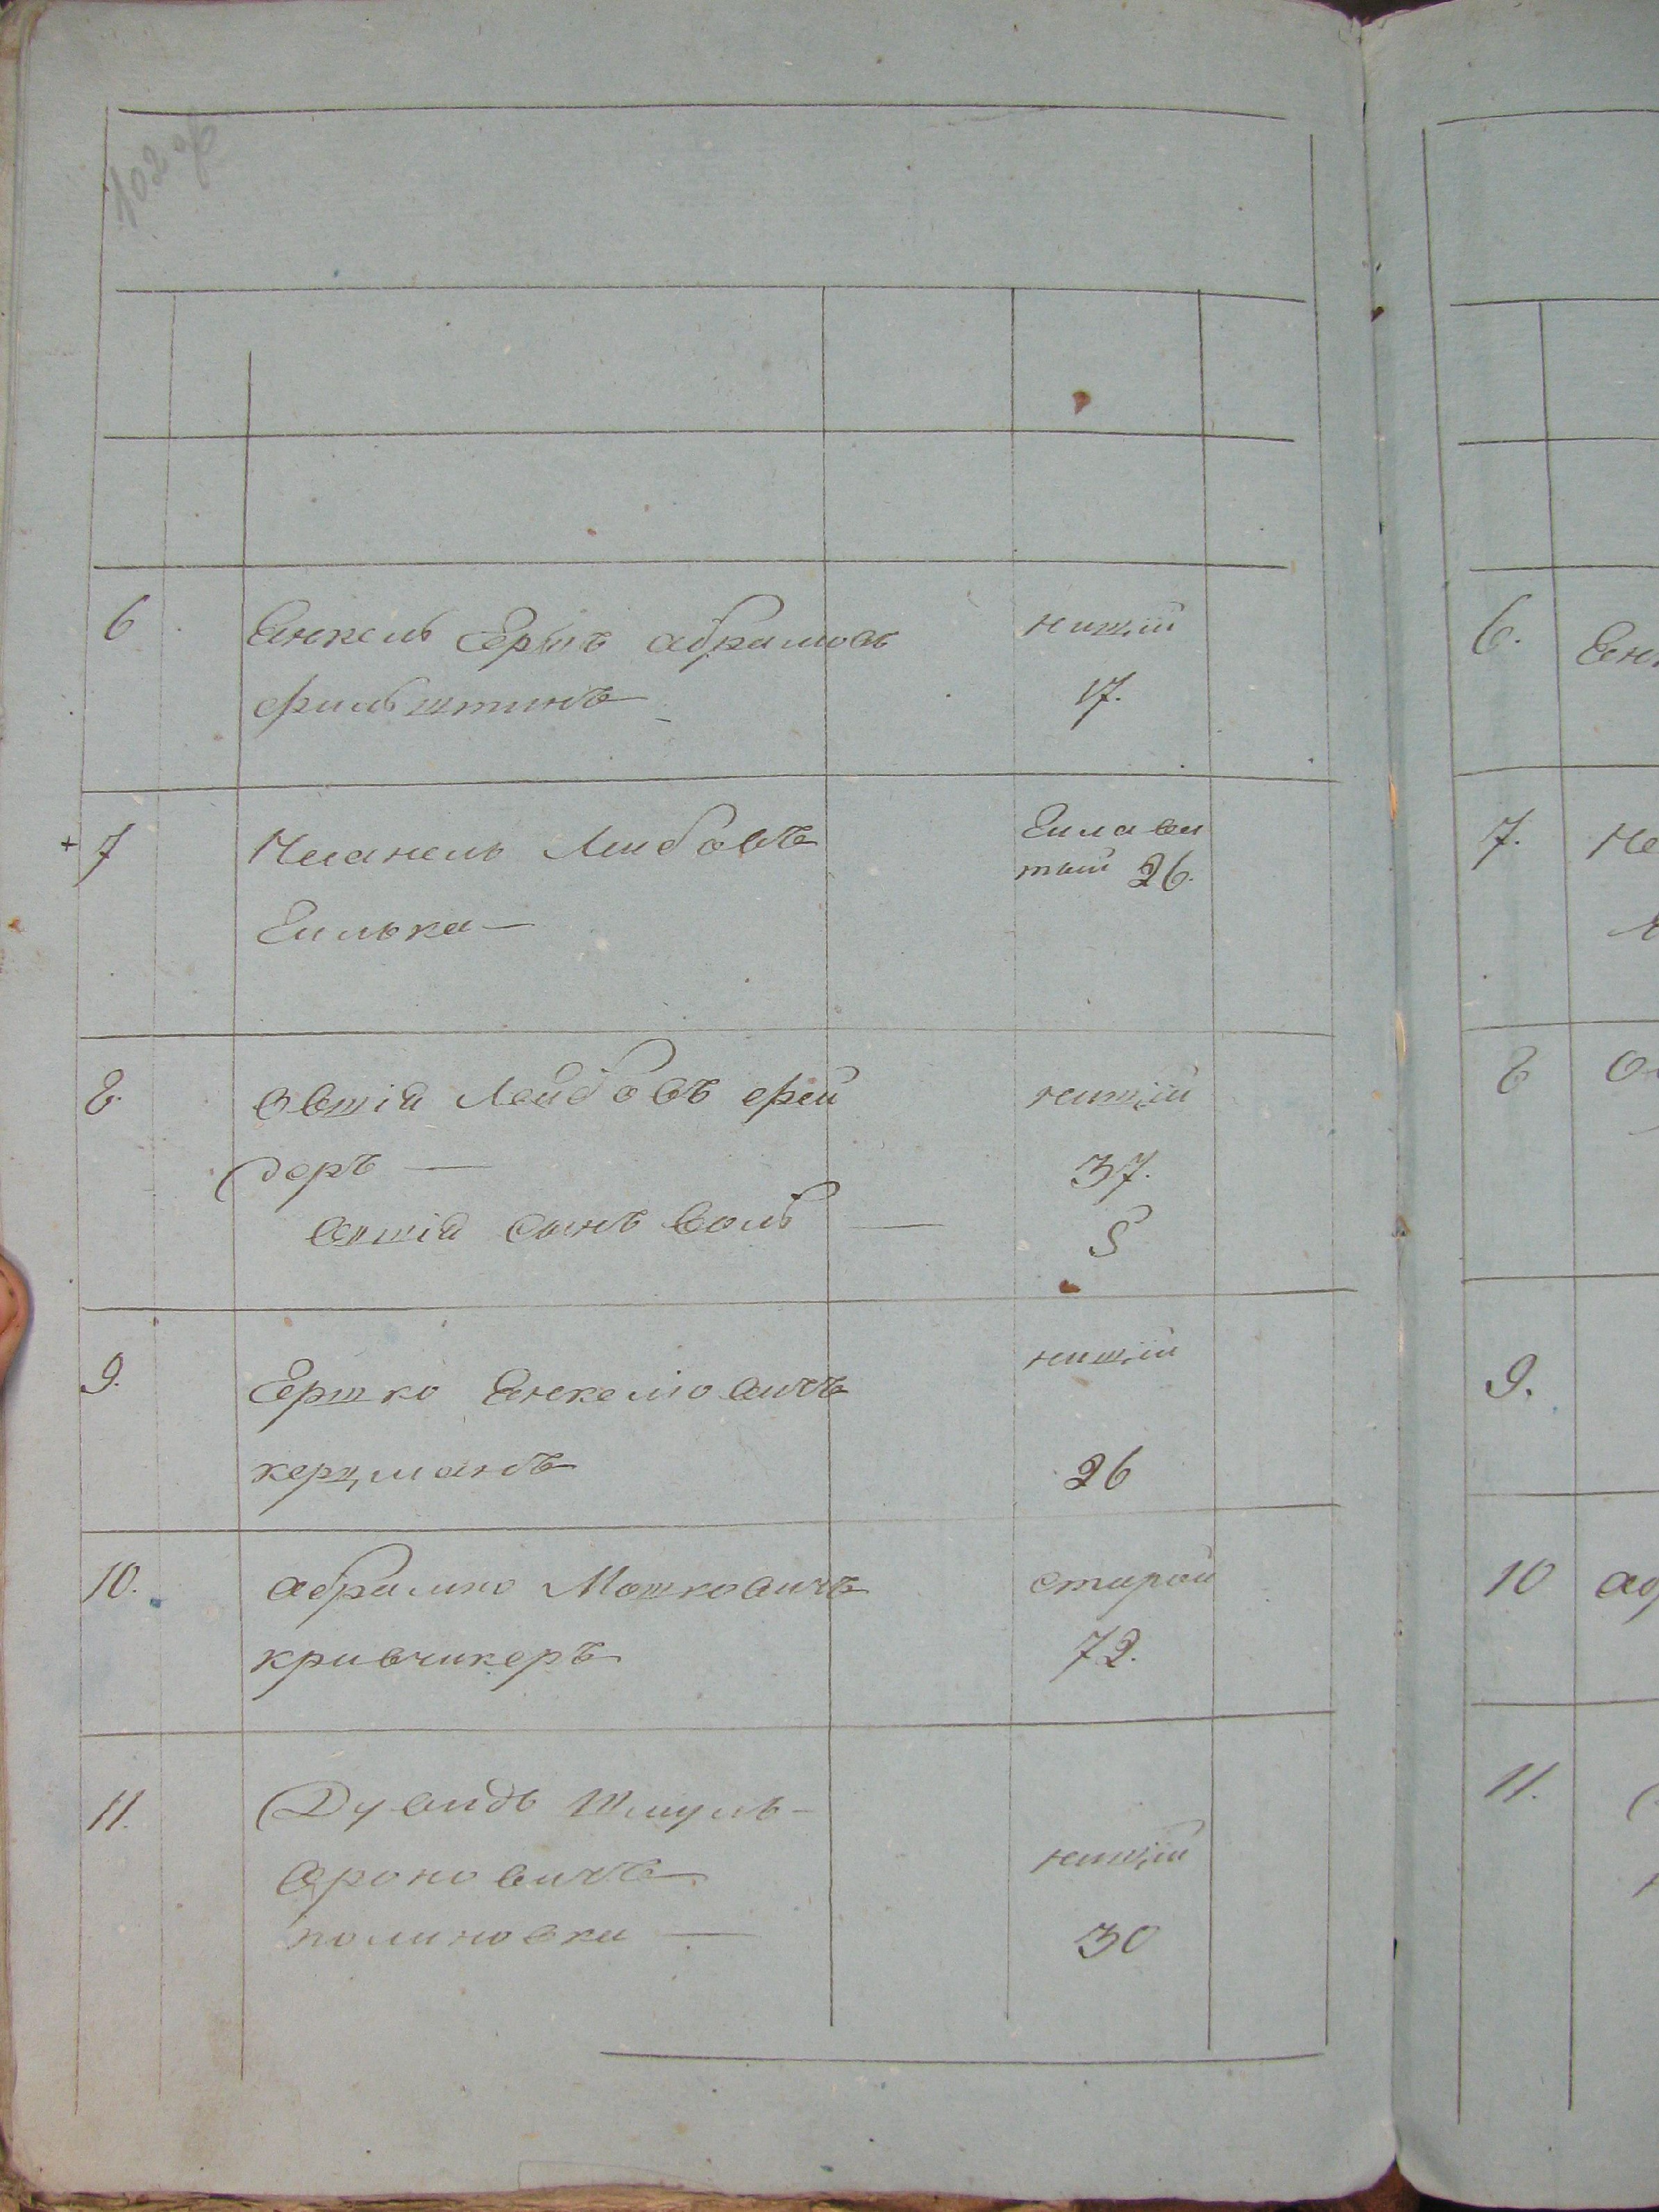 102 об
6 Енкель Ершъ абрамовъ нищій
фильштинъ 17.
+ 7 Неганель Лейбовъ
Гилька — 26.
8. Овшія Лейбовъ фей нищій
деръ — 37.
Овшія сынъ Воль — 5
9. Ершко Енкелiовичъ нищій
керцманъ 26
10. абрамко Мошковичъ старой
кривчикеръ 72.
11. Дувидъ Шмуль-
Ароновичъ нищій
полиновки — 30
6. Енк
7. Не
8 Ов
9.
10 аб
11.